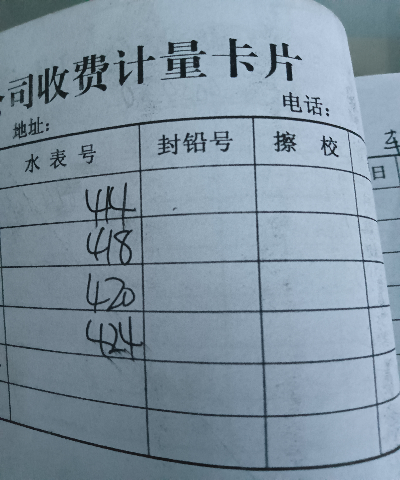 司收费计量卡片
地址:
电话:
水表号 封铅号 擦校
日
414
418
420
424